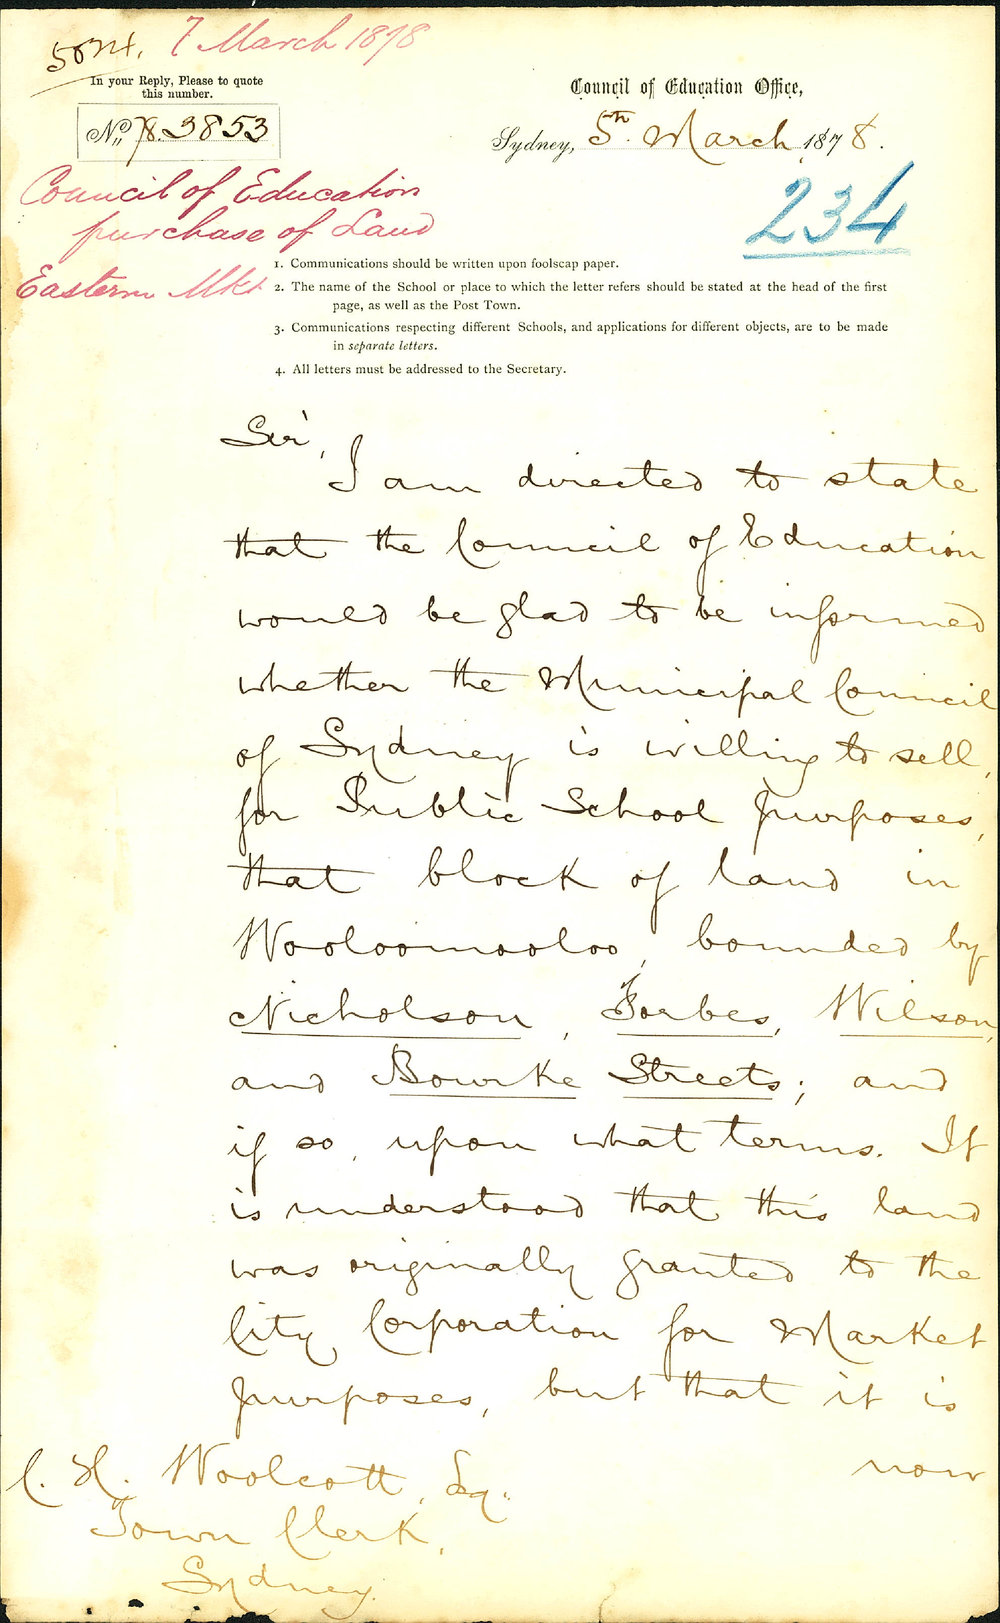 7 March 1878
In your Reply, Please to quote
this number.
No. 78.3853
Council of Education Office,
Sydney, 5th March 1878.
Council of Education
purchase of Land
Eastern Mkt
234
1. Communications should be written upon foolscap paper.
2. The name of the School or place to which the letter refers should be stated at the head of the first
page, as well as the Post Town.
3. Communications respecting different Schools, and applications for different objects, are to be made
in separate letters.
4. All letters must be addressed to the Secretary.
Sir,
I am directed to state
that the Council of Education
would be glad to be informed
whether the Municipal Council
of Sydney is willing to sell,
for Public School purposes,
that block of land in
Wooloomooloo, bounded by
Nicholson, Forbes, Wilson,
and Bourke Streets; and
if so, upon what terms. It
is understood that this land
was originally granted to the
City Corporation for Market
purposes, but that it is
now
C. H. Woolcott, Esq.
Town Clerk,
Sydney.